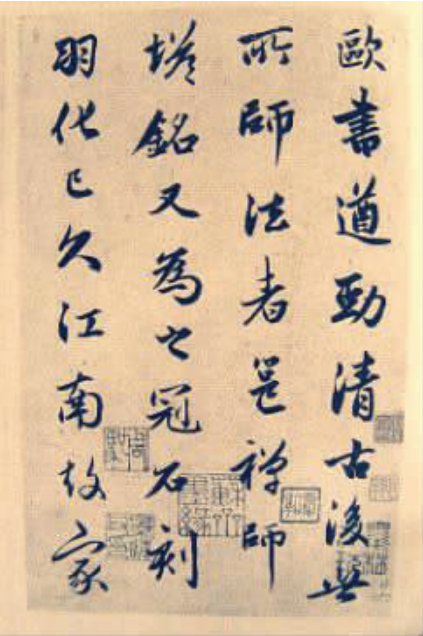 歐書遒勁清古後世
所師法者邕禅師
塔銘又為之冠石刻
羽化已久江南故家